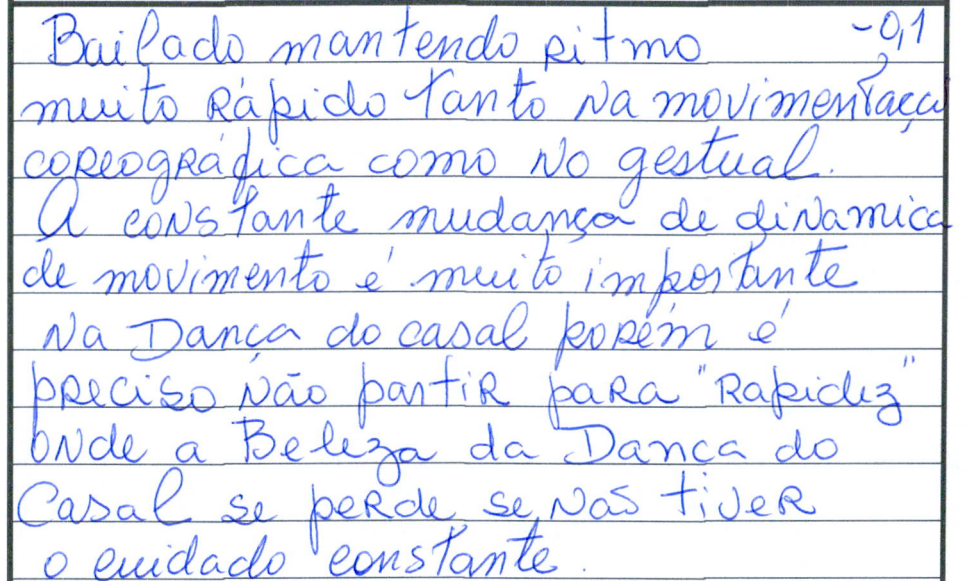 Bailado mantendo ritmo -0,1
muito rápido tanto na movimentaçã
coreográfica como no gestual.
A constante mudança de dinamica
de movimento é muito importante
na Dança do casal porém é
preciso não partir para "Rapidez"
onde a Beleza da Dança do
Casal se perde se não tiver
o cuidado constante.